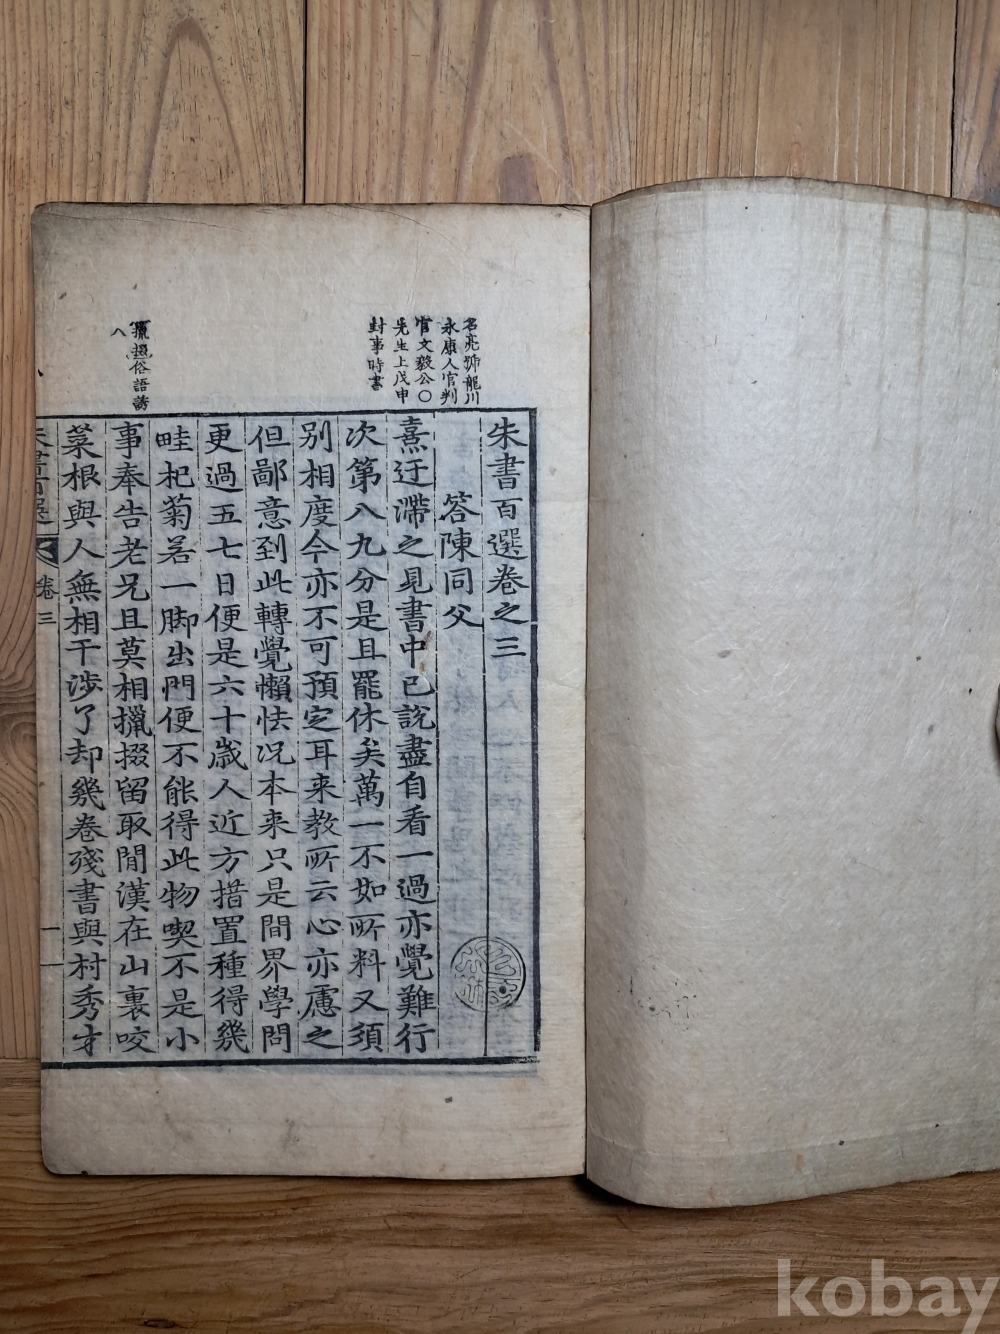 名亮號龍川
永康人官判
官文毅公○
先生上戊申
封事時書
朱書百選卷之三
答陳同父
熹迂滯之見書中已說盡自看一過亦覺難行
次第八九分是且罷休矣萬一不如所料又須
別相度今亦不可預定耳来教所云心亦慮之
但鄙意到此轉覺懶怯况本来只是間界學問
更過五七日便是六十歲人近方措置種得幾
畦杞菊若一脚出門便不能得此物喫不是小
事奉告老兄且莫相攛掇留取閒漢在山裏咬
菜根與人無相干涉了却幾卷殘書與村秀才
俗語誘
八
朱書百選
卷三
一
kobay